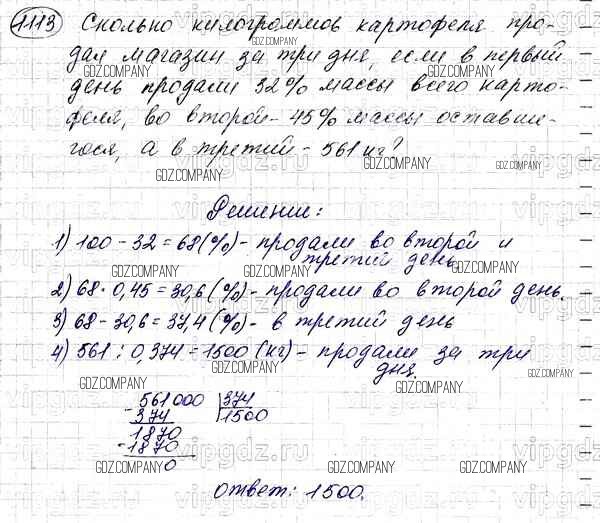 1113 Сколько килограммов картофеля про-
дал магазин за три дня, если в первый
день продали 32% массы всего карто-
феля, во второй - 45% массы оставше-
гося, а в третий - 561 кг?
Решение:
1) 100 - 32 = 68 (%) - продали во второй и
третий день
2) 68 · 0,45 = 30,6 (%) - продали во второй день.
3) 68 - 30,6 = 37,4 (%) - в третий день
4) 561 : 0,374 = 1500 (кг) - продали за три
дня.
561000 | 374
- 374 | 1500
1870
- 1870
0
Ответ: 1500.